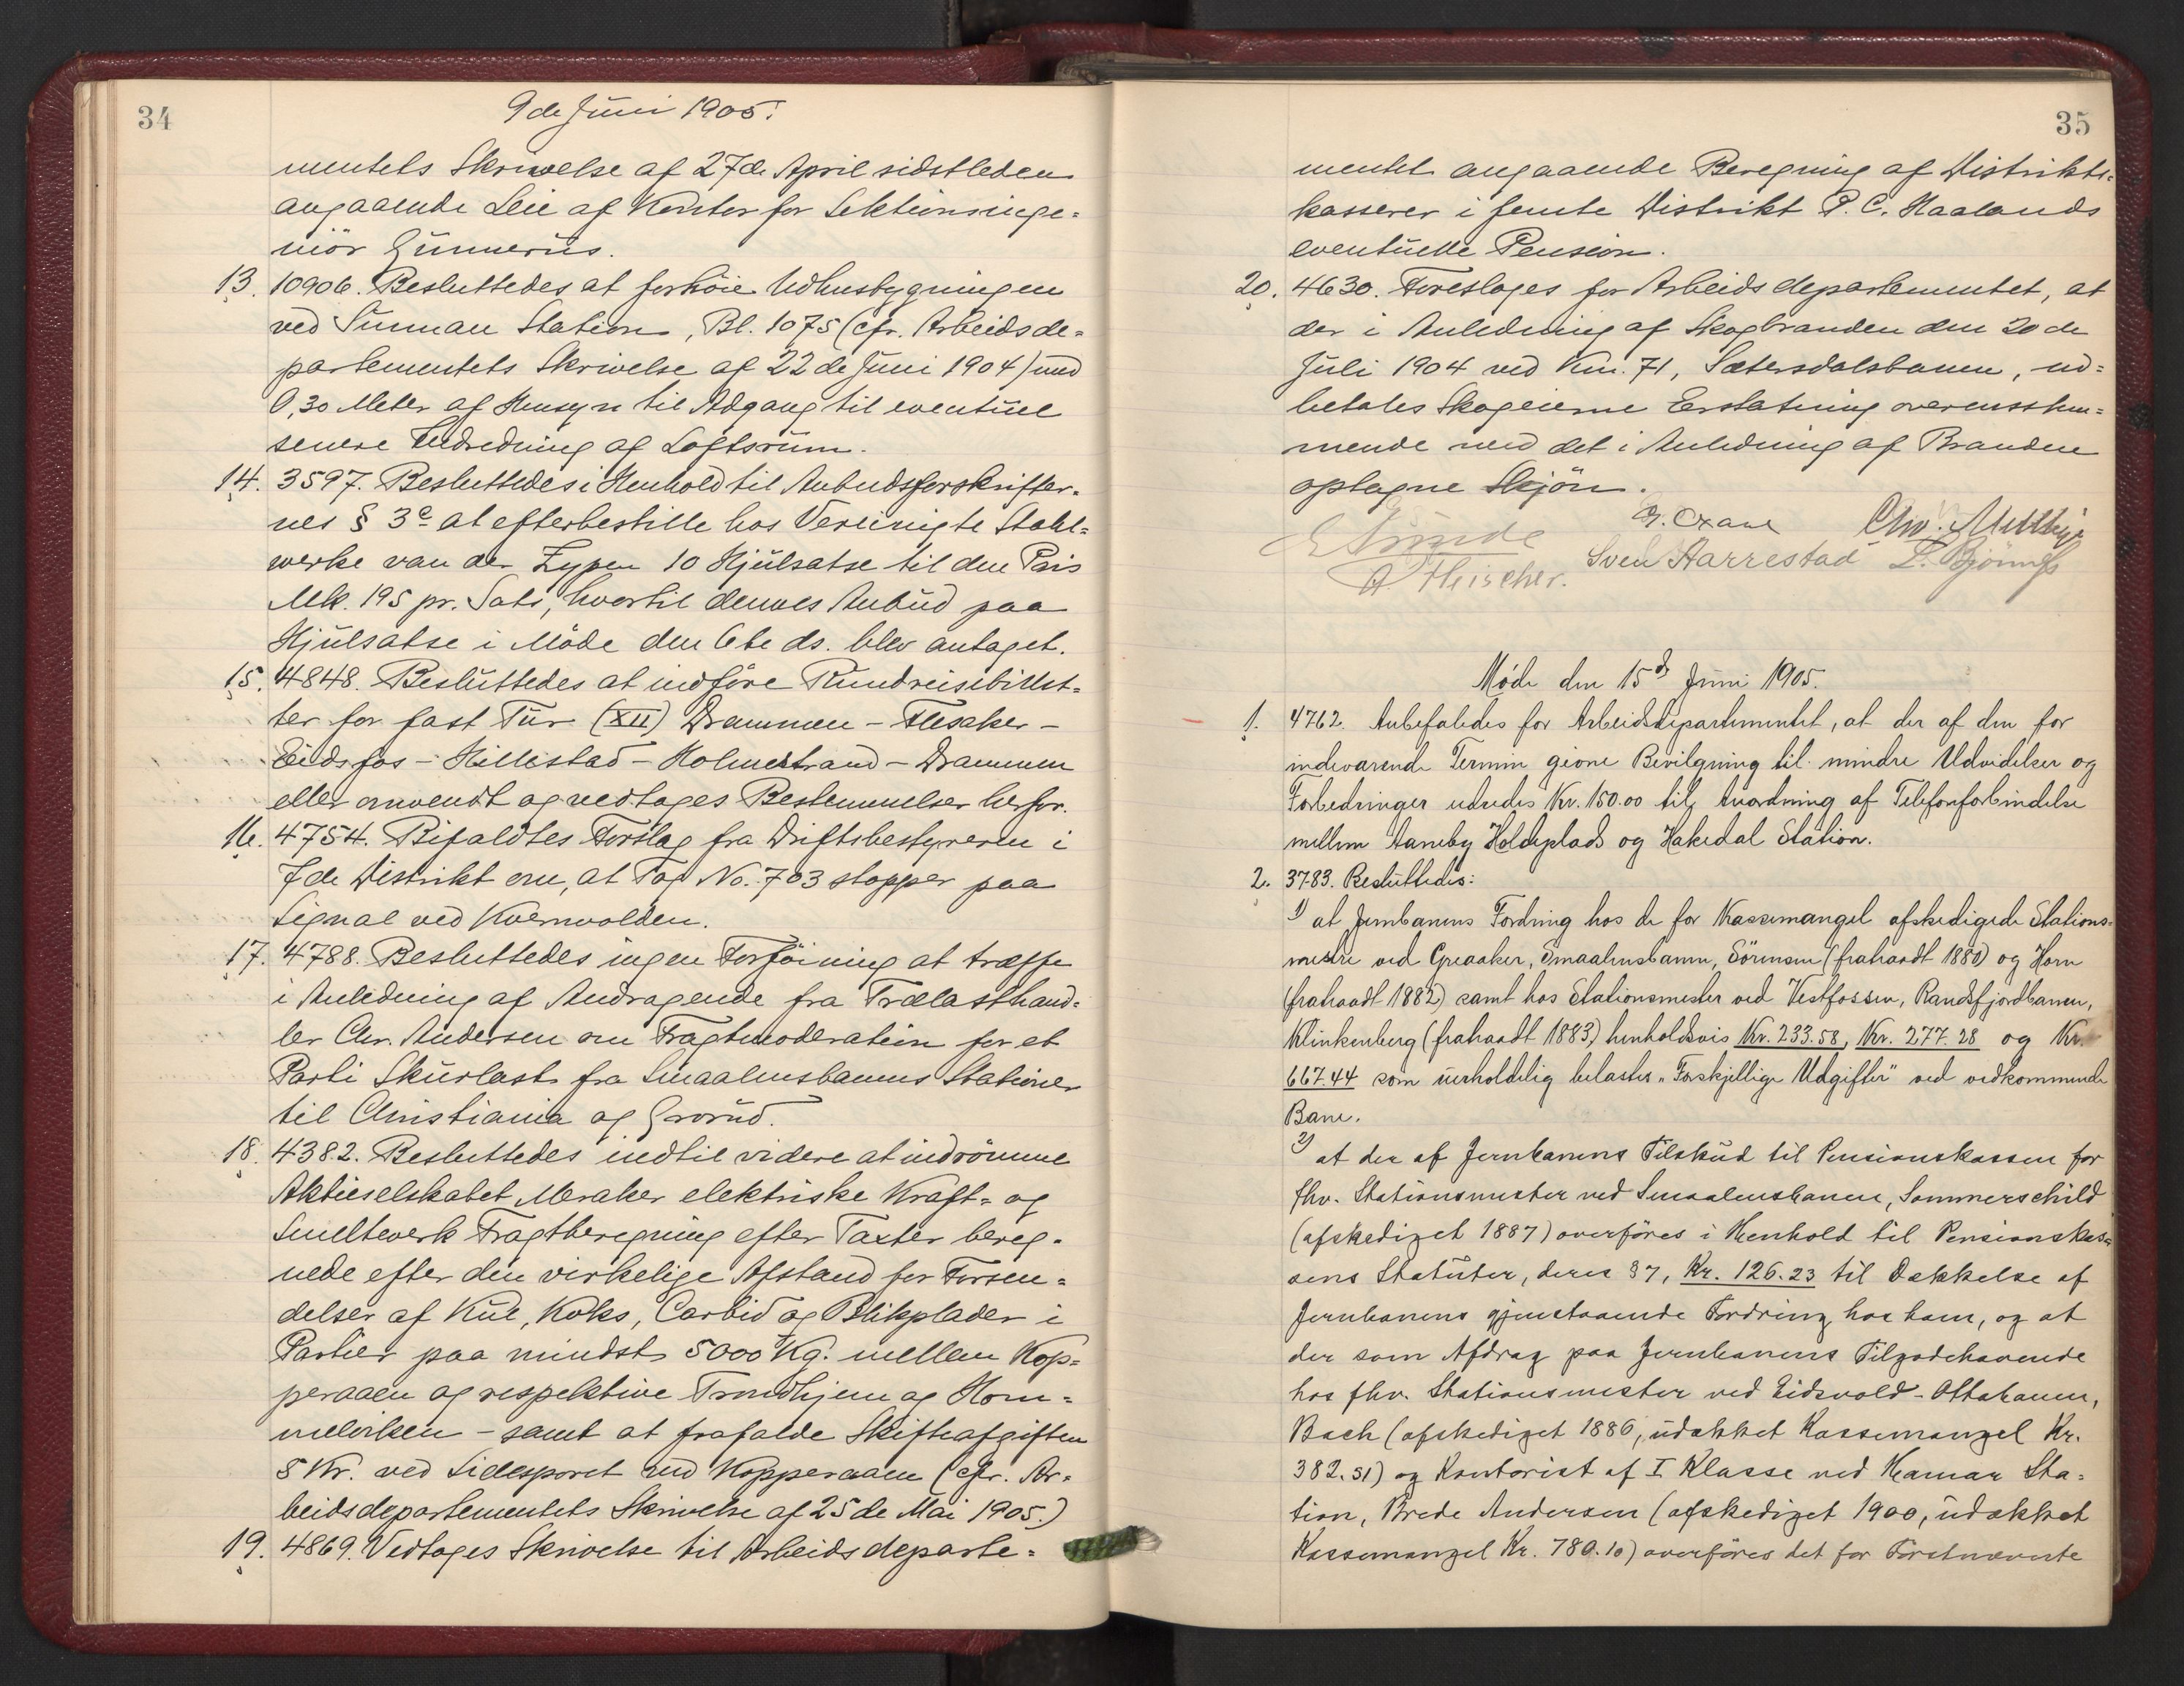 34
9de Juni 1905.
mentets Skrivelse af 27de April sidstleden
angaaende Leie af Kontor for Sektionsinge=
niör Gunnerus.
13. 10906. Besluttedes at forhöie Udhusbygningen
ved Sunnan Station, Bl. 1075 (cfr. Arbeidsde=
partementets Skrivelse af 22de Juni 1904) med
0,30 Meter af Hensyn til Adgang til eventuel
senere Indredning af Loftsrum.
14. 3597. Besluttedes i Henhold til Anbudsforskrifter-
nes § 3e at efterbestille hos Vereinigte Stahl=
werke van der Zypen 10 Hjulsatse til den Pris
Mk. 195 pr. Sats, hvortil dennes Anbud paa
Hjulsatse i Möde den 6te ds. blev antaget.
15. 4848. Besluttedes at indföre Rundreisebillet=
ter for fast Tur (XII) Drammen - Flesaker -
Eidsfos - Hillestad - Holmestrand - Drammen
eller omvendt og vedtoges Bestemmelser herfor.
16. 4754. Bifaldtes Forslag fra Driftsbestyreren i
7de Distrikt om, at Tog No. 703 stopper paa
Signal ved Kvernvolden.
17. 4788. Besluttedes ingen Forföining at træffe
i Anledning af Andragende fra Trælasthand=
ler Chr. Andersen om Fragtmoderation for et
Parti Skurlast fra Smaalensbanens Stationer
til Christiania og Grorud.
18. 4382. Besluttedes indtil videre at indrömme
Aktieselskabet Meraker elektriske Kraft= og
Smelteverk Fragtberegning efter Taxter bereg-
nede efter den virkelige Afstand for Forsen=
delser af Kul, Koks, Carbid og Blikplader i
Partier paa mindst 5000 Kg. mellem Kop=
peraaen og respektive Trondhjem og Hom=
melviken - samt at frafalde Skifteafgiften
5 Kr. ved Sidesporet ved Kopperaaen (cfr. Ar=
beidsdepartementets Skrivelse af 25de Mai 1905.)
19. 4869. Vedtoges Skrivelse til Arbeidsdeparte=
35
mentet angaaende Beregning af Distrikts=
kasserer i femte Distrikt P. C. Haalands
eventuelle Pension.
20. 4630. Foresloges for Arbeidsdepartementet, at
der i Anledning af Skogbranden den 20de
Juli 1904 ved Km. 71, Sætersdalsbanen, ud=
betales Skogeierne Erstatning overensstem=
mende med det i Anledning af Branden
optagne Skjön.
E Sunde
Chr.
A Fleischer. Sven Aarrestad
Möde den 15de Juni 1905.
1. 4762. Anbefaledes for Arbeidsdepartementet, at der af den for
indeværende Termin givne Bevilgning til mindre Udvidelser og
Forbedringer udredes Kr. 150.00 til Anordning af Telefonforbindelse
mellem Aaneby Holdeplads og Hakedal Station.
2. 3783. Besluttedes:
1) at Jernbanens Fordring hos de for Kassemangel afskedigede Stations=
mestre ved Greaaker, Smaalensbanen, Sörensen (fratraadt 1880) og Horn
(fratraadt 1882) samt hos Stationsmester ved Vestfossen, Randsfjordbanen,
Klinkenberg (fratraadt 1883) henholdsvis Kr. 233.58, Kr. 277.28 og Kr.
667.44 som uerholdelig belastes "Forskjellige Udgifter" ved vedkommende
Bane.
2) at der af Jernbanens Tilskud til Pensionskassen for
fhv. Stationsmester ved Smaalensbanen, Sommerschild
(afskediget 1887) overföres i Henhold til Pensionskas=
sens Statuter, deres § 7, Kr. 126.23 til Dækkelse af
Jernbanens gjenstaaende Fordring hos ham, og at
der som Afdrag paa Jernbanens Tilgodehavende
hos fhv. Stationsmester ved Eidsvold-Ottabanen,
Bach (afskediget 1886, udækket Kassemangel Kr.
382.51) og Kontorist af I Klasse ved Hamar Sta=
tion, Brede Andersen (afskediget 1900, udækket
Kassemangel Kr. 780.10) overföres det for Förstnævnte